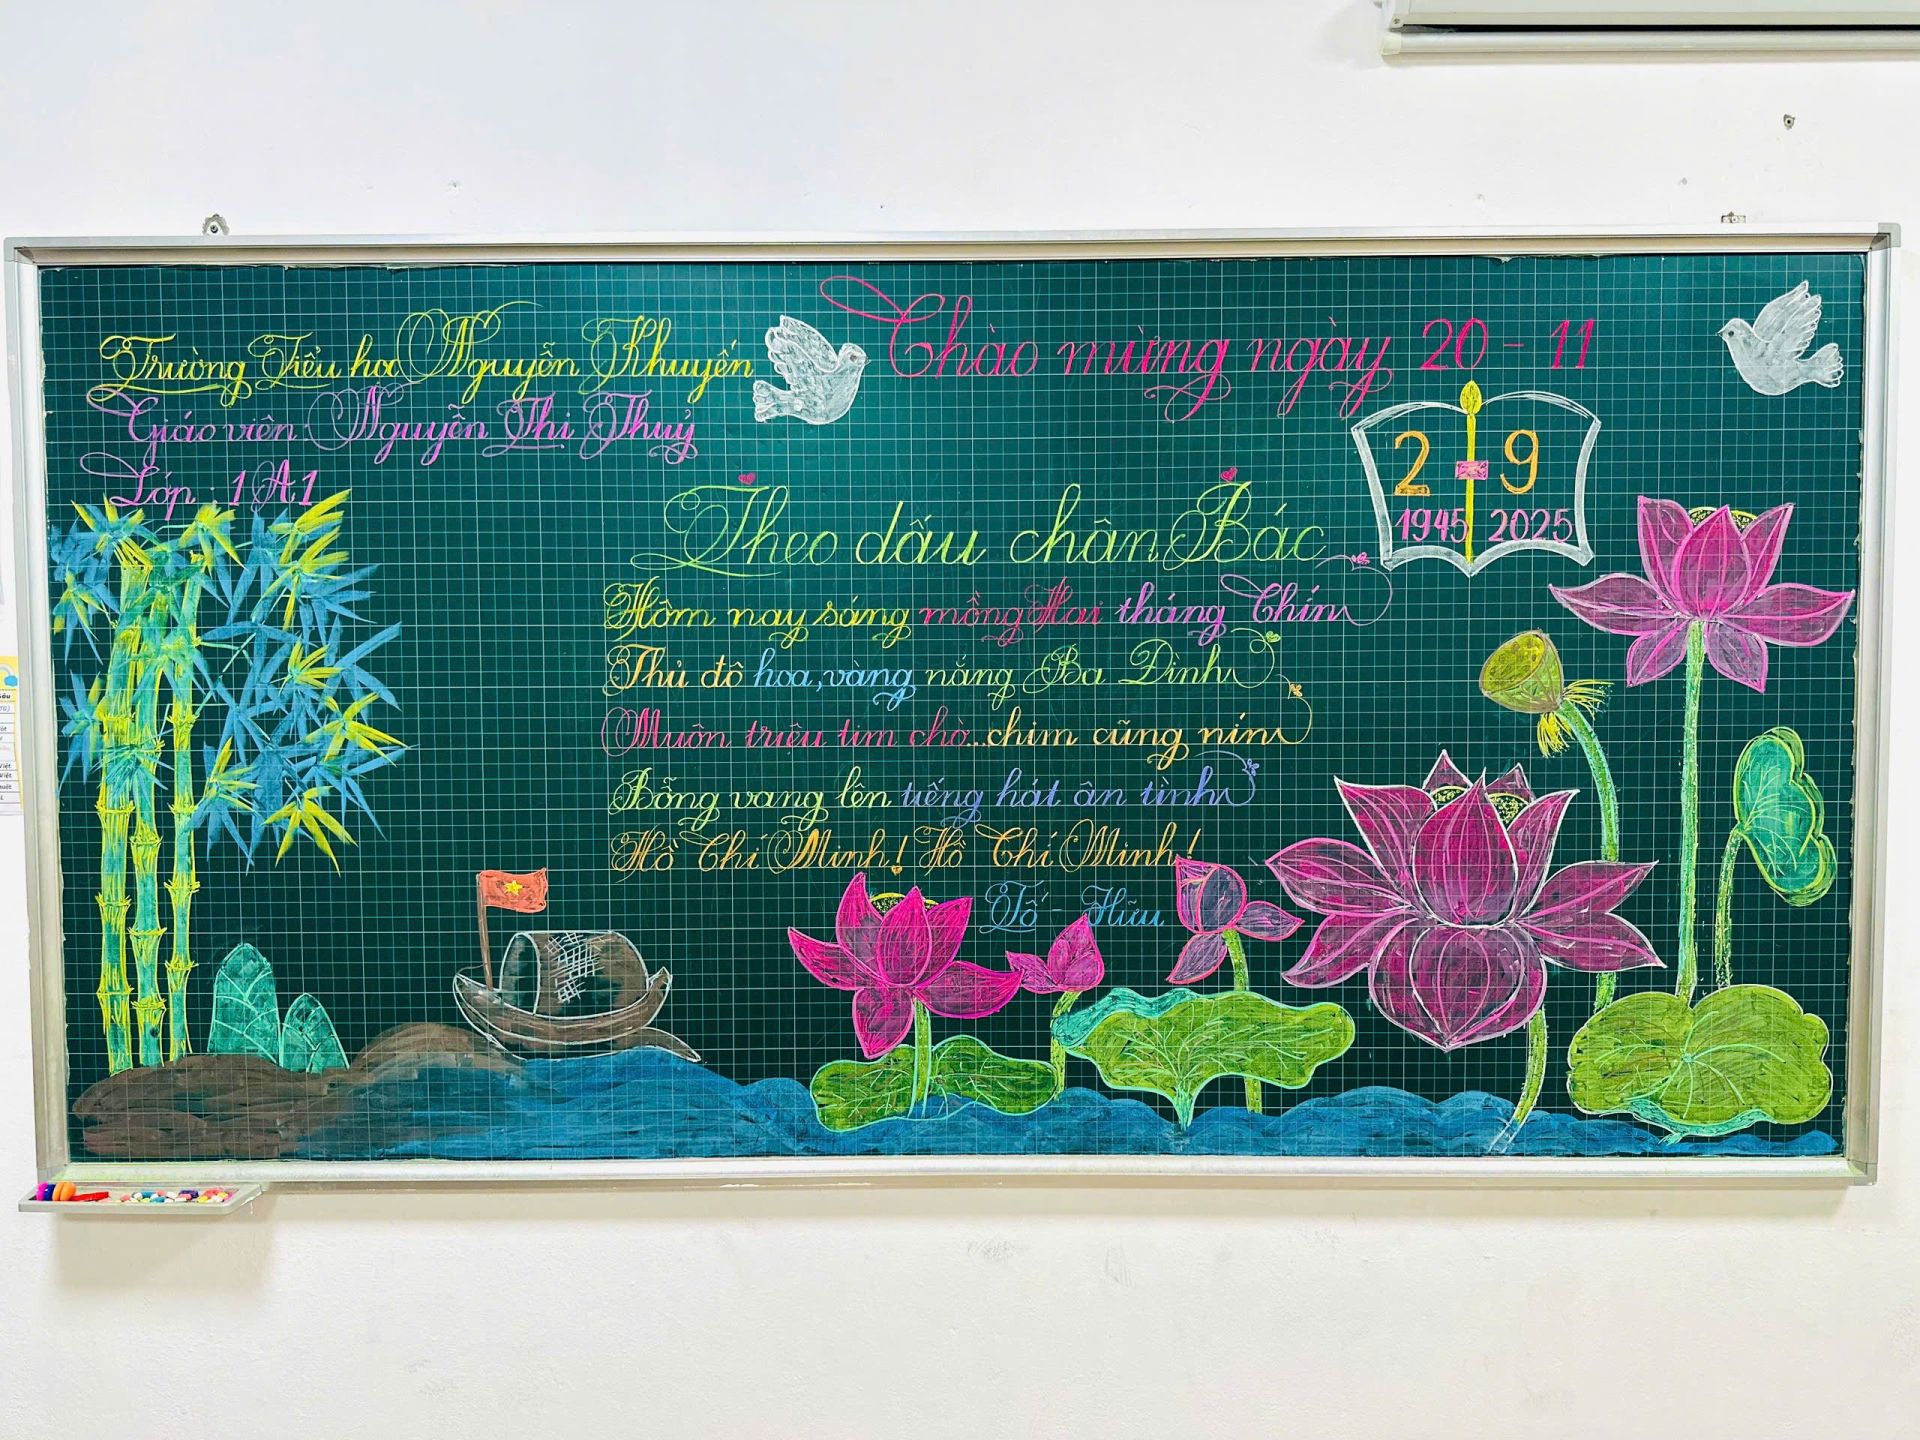 Trường Tiểu học Nguyễn Khuyến
Giáo viên: Nguyễn Thị Thuỷ
Lớp : 1A1
Chào mừng ngày 20 - 11
2 - 9
1945 2025
Theo dấu chân Bác
Hôm nay sáng mồng Hai tháng Chín
Thủ đô hoa, vàng nắng Ba Đình
Muôn triệu tim chờ...chim cũng nín
Bỗng vang lên tiếng hát ân tình
Hồ Chí Minh! Hồ Chí Minh!
Tố - Hữu